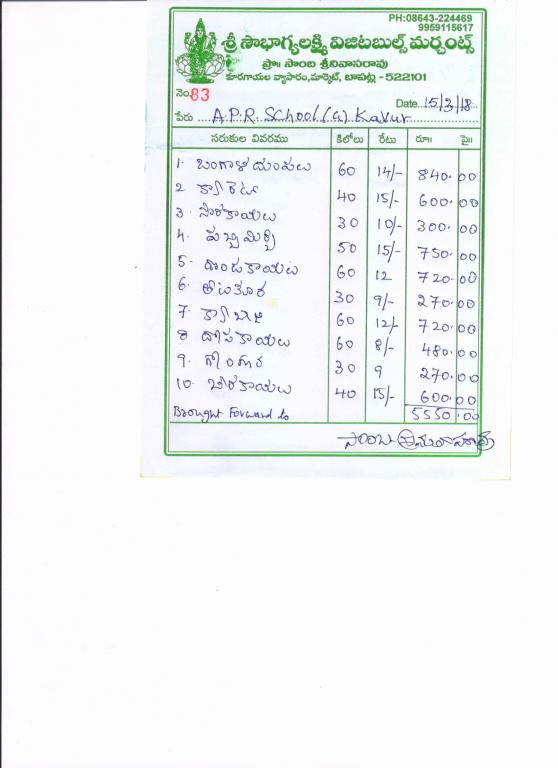 PH:08643-224469
9959115617
శ్రీ సౌభాగ్యలక్ష్మి విజిటబుల్స్ మర్చంట్స్
ప్రొ॥ సాంబ శ్రీనివాసరావు
కూరగాయల వ్యాపారం,మార్కెట్, బాపట్ల - 522101
నెం. 83
Date 15/3/18
పేరు A.P.R. School (G) Kavur
సరుకుల వివరము కిలోలు రేటు రూ॥ పై॥
1. బంగాళదుంపలు 60 14/- 840.00
2 క్యారెట్ 40 15/- 600.00
3. సొరకాయలు 30 10/- 300.00
4. పచ్చిమిర్చి 50 15/- 750.00
5. దొండకాయలు 60 12 720.00
6. తోటకూర 30 9/- 270.00
7. క్యాబేజి 60 12/- 720.00
8 దోసకాయలు 60 8/- 480.00
9. గోంగూర 30 9 270.00
10. బీరకాయలు 40 15/- 600.00
Brought Forward to 5550.00